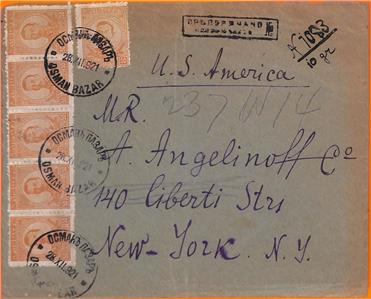 ПРѢПОРѪЧАНО
№
№ 1083
10 gr
ОСМАНЪ ПАЗАРЪ
28.XII.921
OSMAN BAZAR
U.S. America
237 W 14
MR.
A. Angelinoff Cº
ОСМАНЪ ПАЗАРЪ
28.XII.921
OSMAN BAZAR
140 Liberti Strs
New-York. N.Y.
ОСМАНЪ ПАЗАРЪ
28.XII.921